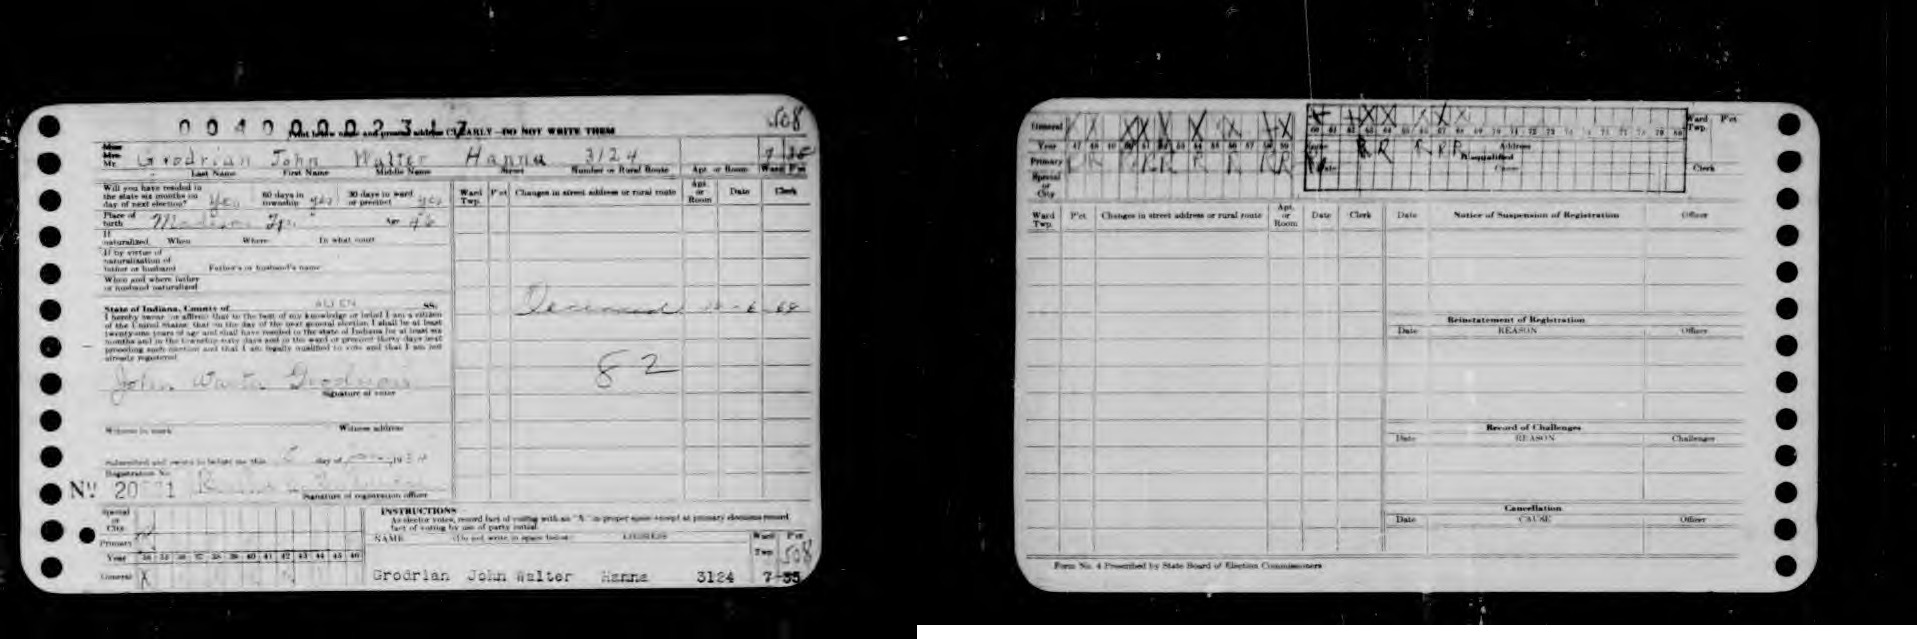 508
00400002317
Print below name and present address CLEARLY—DO NOT WRITE THEM
Miss
Mrs.
Mr. Grodrian John Walter Hanna 3124
Last Name First Name Middle Name Street Number or Rural Route Apt. or Room Ward P'ct
Will you have resided in the state six months on day of next election? Yes 60 days in township Yes 30 days in ward or precinct Yes
Place of birth Madison Age 46
If naturalized, When Where In what court
If by virtue of naturalization of father or husband Father's or husband's name
When and where father or husband naturalized
State of Indiana, County of ALLEN SS.
I hereby swear or affirm that to the best of my knowledge or belief I am a citizen
of the United States; that on the day of the next general election I shall be at least
twenty-one years of age and shall have resided in the state of Indiana for at least six
months and in the township sixty days and in the ward or precinct thirty days next
preceding such election and that I am legally qualified to vote and that I am not
already registered.
John Walter Grodrian
Signature of voter
Witness to mark Witness address
Subscribed and sworn to before me this day of 19
Registration No.
No 20
Signature of registration officer
Ward Twp. P'ct Changes in street address or rural route Apt. or Room Date Clerk
Deceased
82
Special or City
Primary
Year 34 35 36 37 38 39 40 41 42 43 44 45 46
General X
INSTRUCTIONS
As elector votes, record fact of voting with an "X" in proper space except at primary elections record
fact of voting by use of party initial.
NAME (Do not write in space below) ADDRESS Ward Twp. P'ct
508
Grodrian John Walter Hanna 3124 7-35
General
Year 47 48 49 50 51 52 53 54 55 56 57 58 59
Primary
Special or City
60 61 62 63 64 65 66 67 68 69 70 71 72 73 74 75 76 77 78 79 80
Name Address
Date Disqualified Cause
Ward Twp. P'ct
Clerk
Ward Twp. P'ct Changes in street address or rural route Apt. or Room Date Clerk Date Notice of Suspension of Registration Officer
Reinstatement of Registration
Date REASON Officer
Record of Challenges
Date REASON Challenger
Cancellation
Date CAUSE Officer
Form No. 4 Prescribed by State Board of Election Commissioners